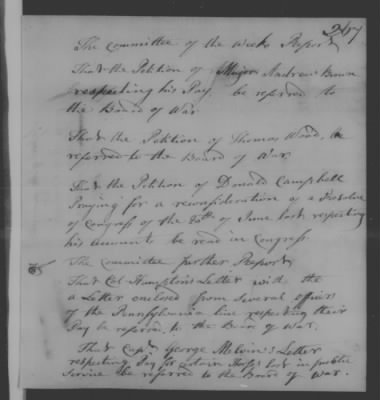 247
The Committee of the Week Report
That the Petition of Major Andrew Brown
respecting his Pay, be referred to
the Board of War
That the Petition of Thomas Wood, be
referred to the Board of War.
That the Petition of Donald Campbell
Praying for a reconsideration of a Resolve
of Congress of the 20th of June last respecting
his account be read in Congress.
The Committee further Report
That Col Hampton's Letter with the
a Letter enclosed from Several officers
of the Pennsylvania line respecting their
Pay be referred to the Board of War.
That Capt George Melvin's Letter
respecting Pay for certain Horses lost in publick
Service be referred to the Board of War.